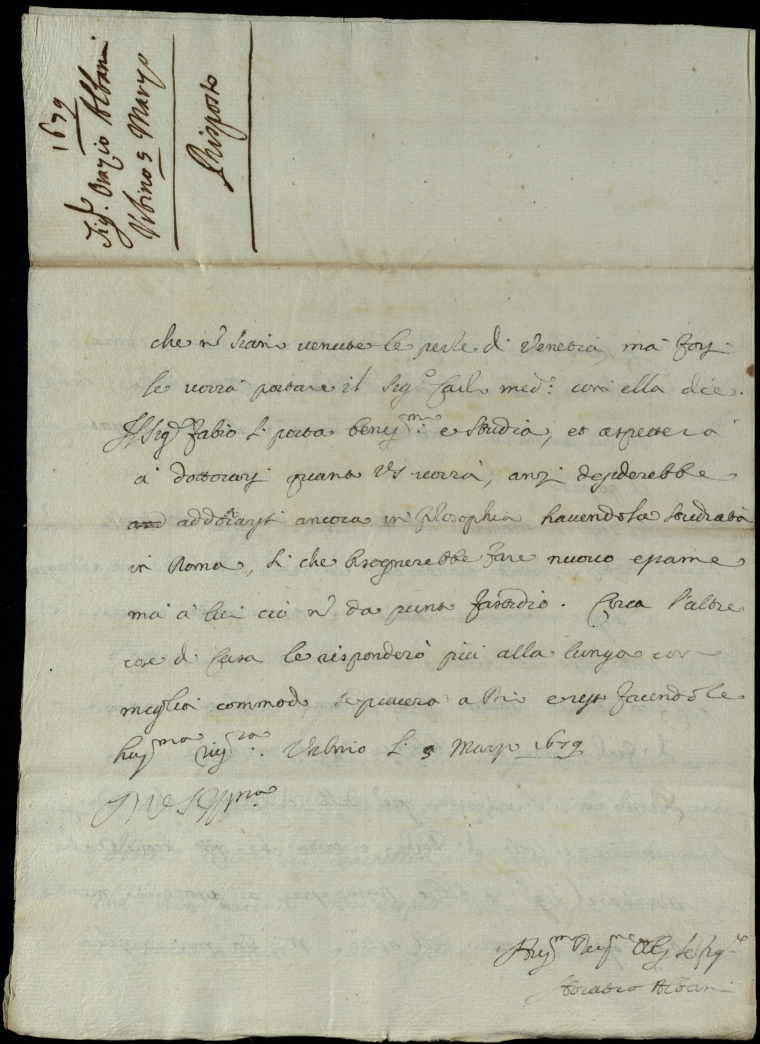 1679
Sig.r Orazio Albani
Urbino 5 Marzo
Risposto
che nò siano venute le perle di Venetia, mà forsi
le vorrà portare il Sig.o Carlo med.o come ella dice.
Il Sig.r Fabio si porta beniss.mo e studia, et aspetterà
à dottorarsi quanto VS vorrà, anzi desiderebbe
addottorarsi ancora in filosophia havendola studiata
in Roma, si che bisognerebbe fare nuovo esame
mà à lui ciò nò da punto fastidio. Circa l'altre
cose di Casa le risponderò più alla lunga con
meglior commodo se piacerà a Dio e resto facendole
hum.ma riv.za. Urbino li 5 Marzo 1679
Di VS Ill.ma
Horatio Albani